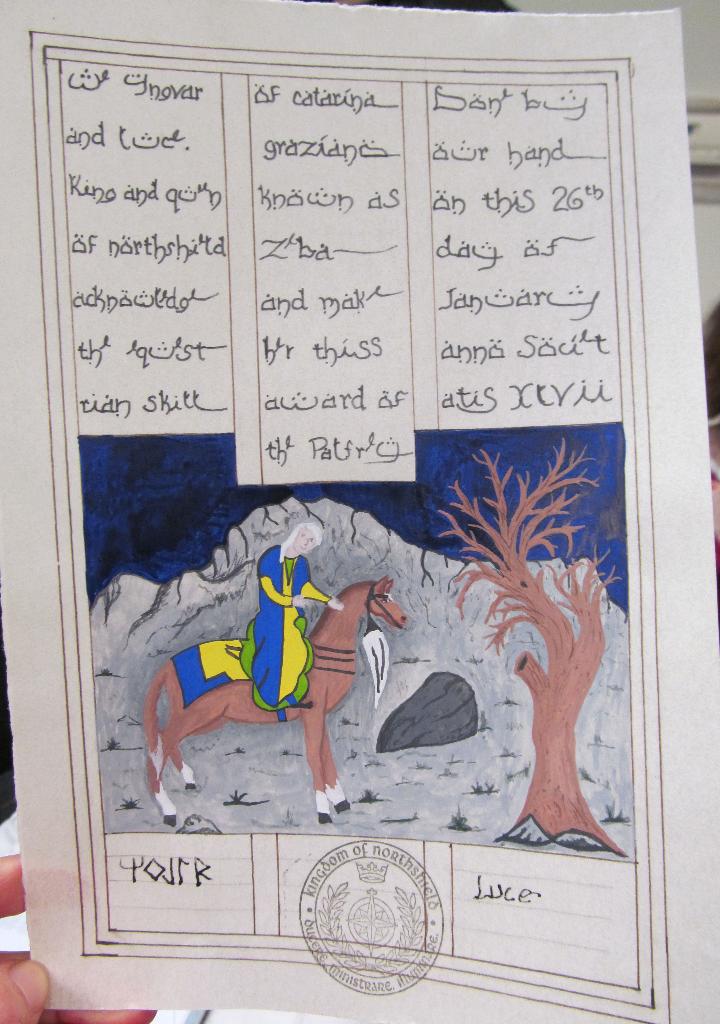 We Yngvar
and Luce.
King and queen
of northshield
acknowledge
the equest
rian skill
of catarina
graziana
known as
Zeba
and make
her thiss
award of
the Palfrey
Done by
our hand
on this 26th
day of
January
anno Societ
atis XLVII
Luce
kingdom of northshield